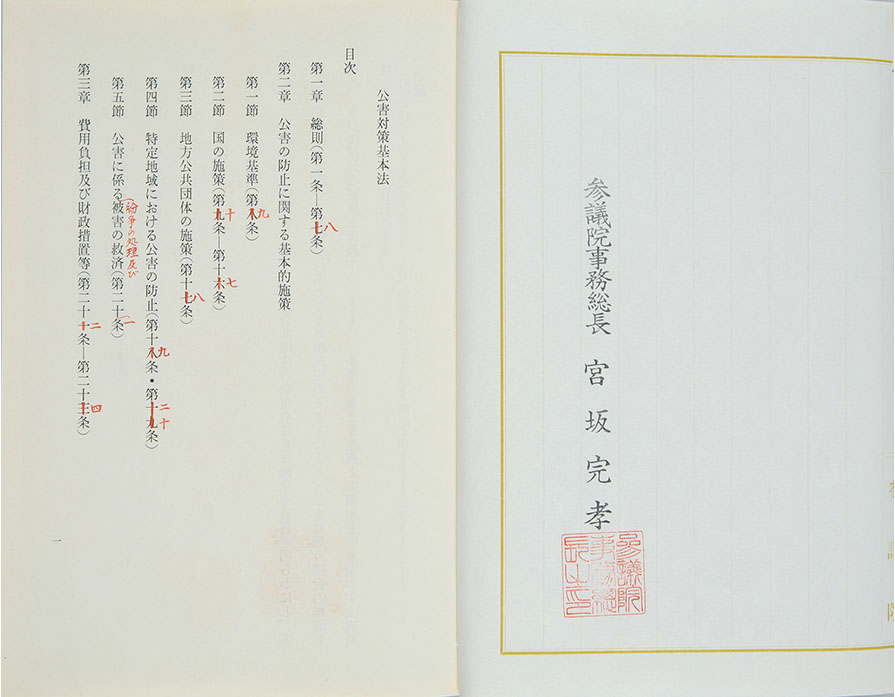 参議院事務総長 宮坂完孝
参議院
事務総
長之印
参議院
公害対策基本法
目次
第一章 総則(第一条―第七八条)
第二章 公害の防止に関する基本的施策
第一節 環境基準(第八九条)
第二節 国の施策(第九十条―第十六七条)
第三節 地方公共団体の施策(第十七八条)
第四節 特定地域における公害の防止(第十八九条・第十九二十条)
第五節 公害に係る被害の救済(第二十条)
紛争の処理及び
一
第三章 費用負担及び財政措置等(第二十一二条―第二十三四条)
一